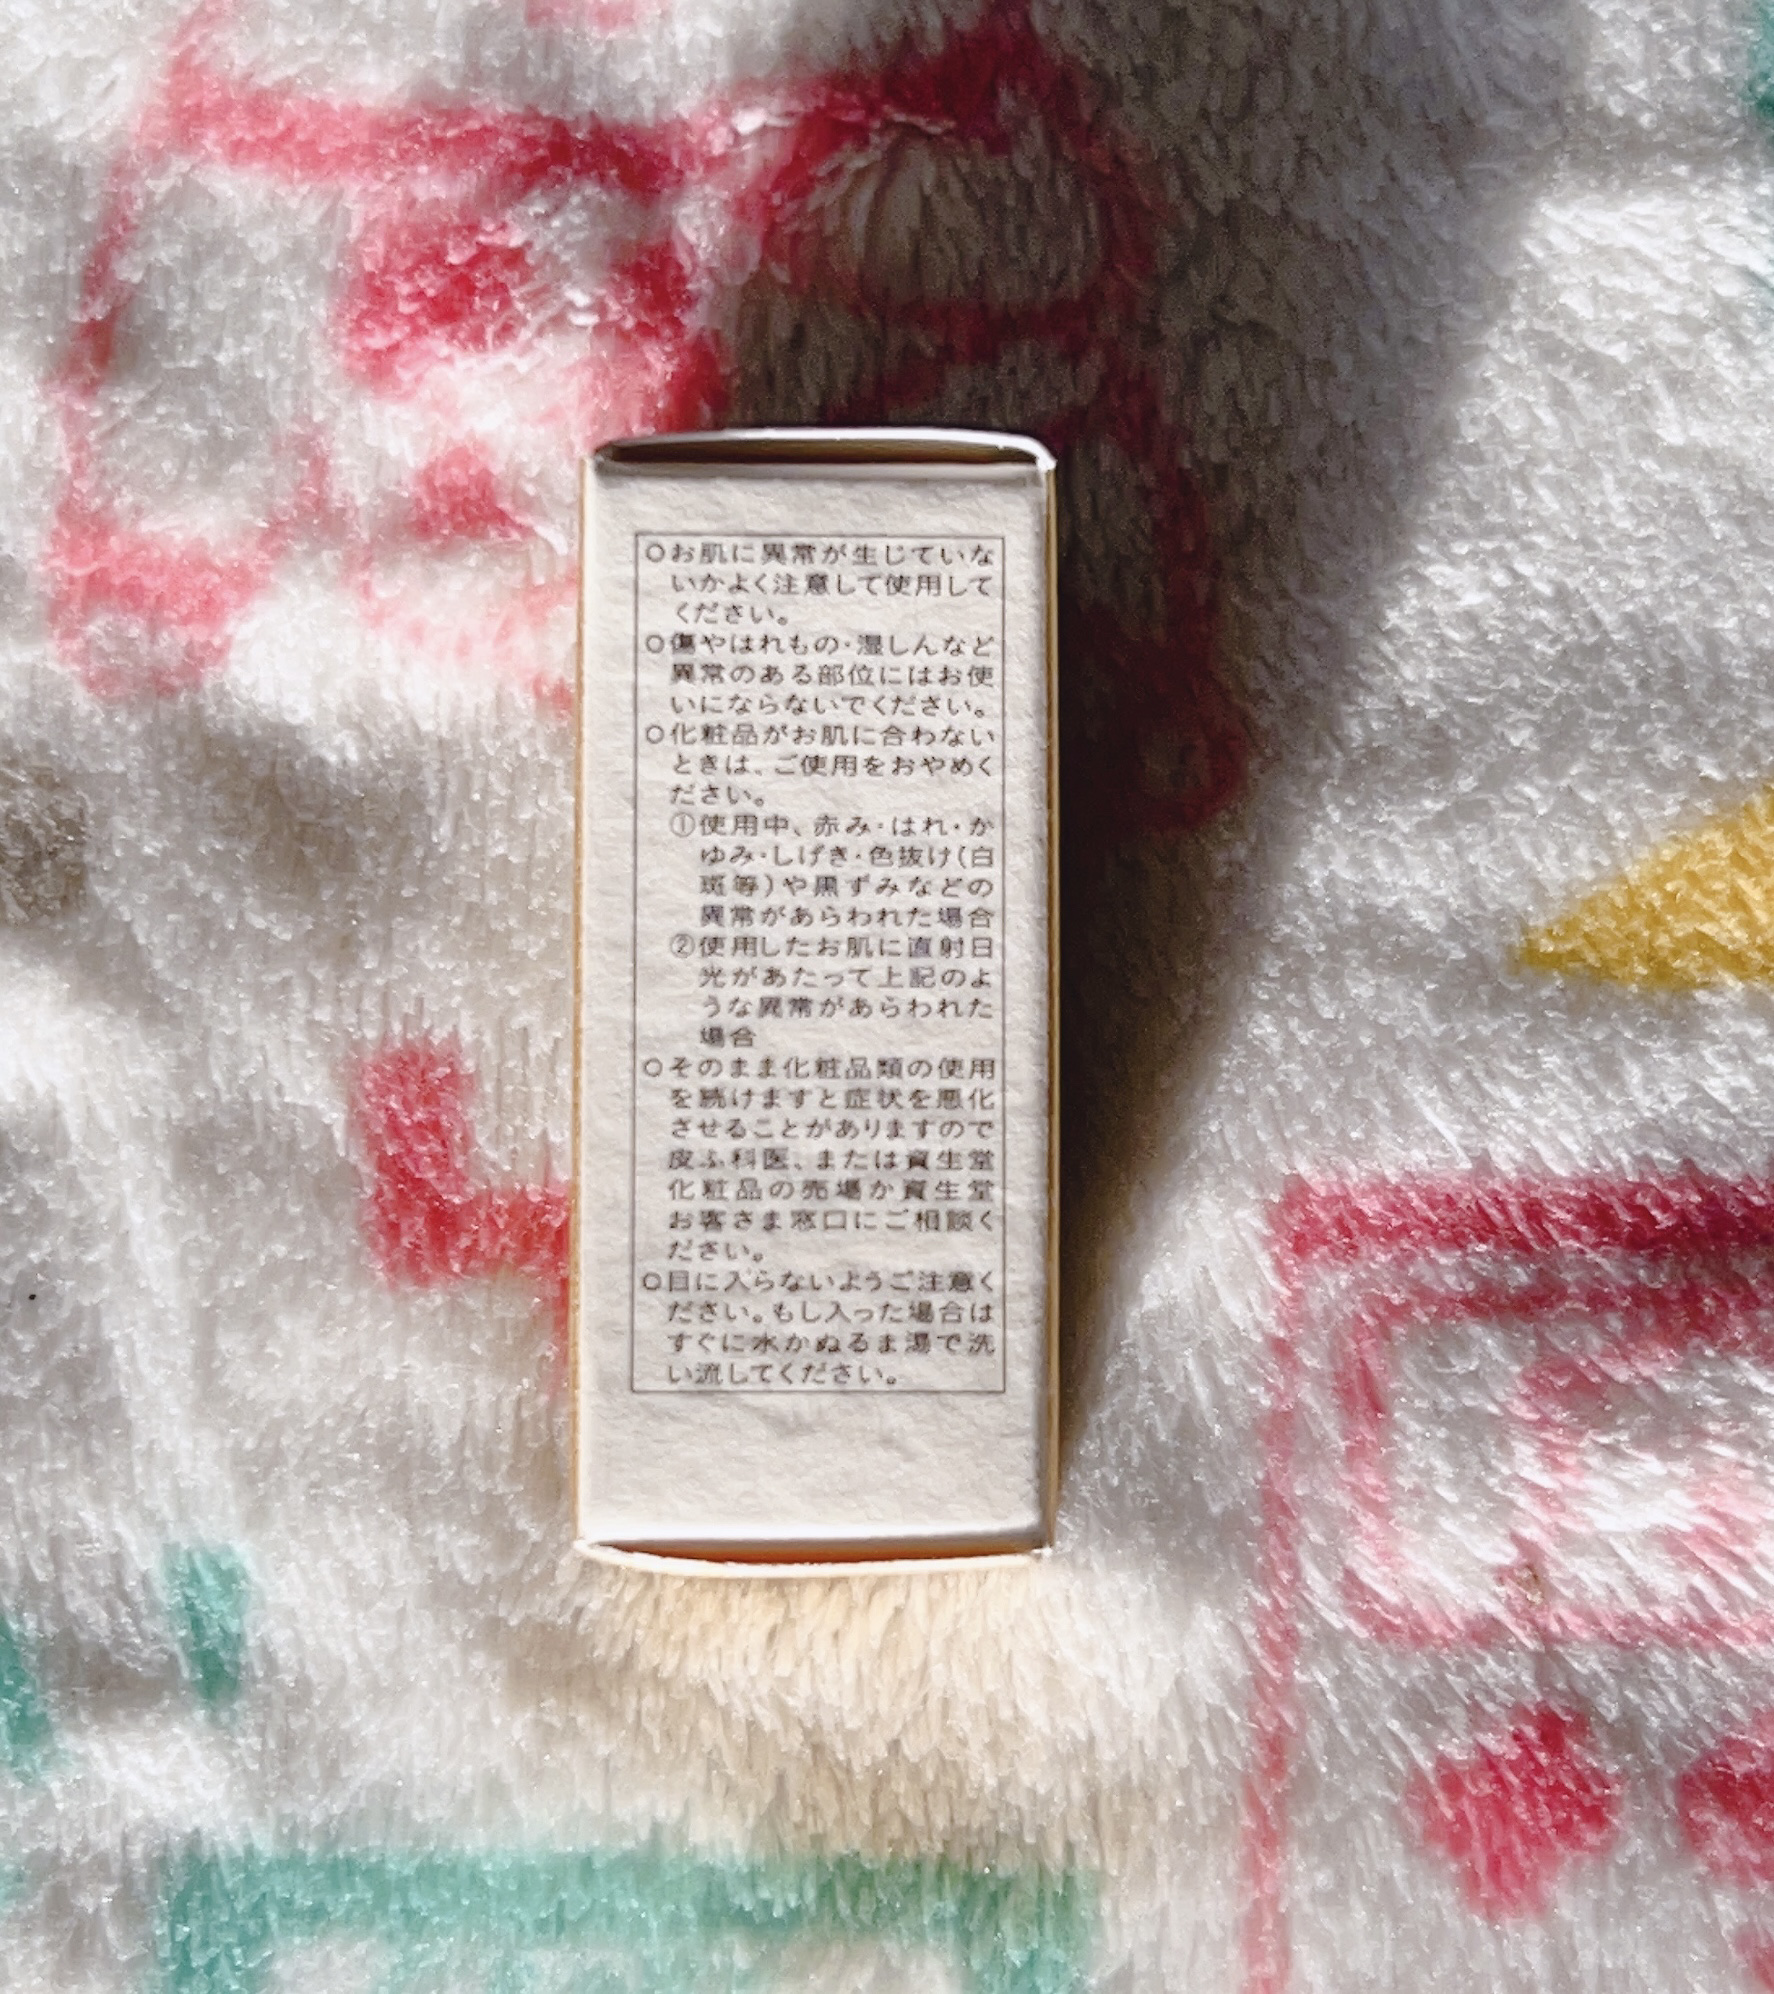 ○お肌に異常が生じていな
いかよく注意して使用して
ください。
○傷やはれもの・湿しんなど
異常のある部位にはお使
いにならないでください。
○化粧品がお肌に合わない
ときは、ご使用をおやめく
ださい。
①使用中、赤み・はれ・か
ゆみ・しげき・色抜け(白
斑等)や黒ずみなどの
異常があらわれた場合
②使用したお肌に直射日
光があたって上記のよ
うな異常があらわれた
場合
○そのまま化粧品類の使用
を続けますと症状を悪化
させることがありますので
皮ふ科医、または資生堂
化粧品の売場か資生堂
お客さま窓口にご相談く
ださい。
○目に入らないようご注意く
ださい。もし入った場合は
すぐに水かぬるま湯で洗
い流してください。